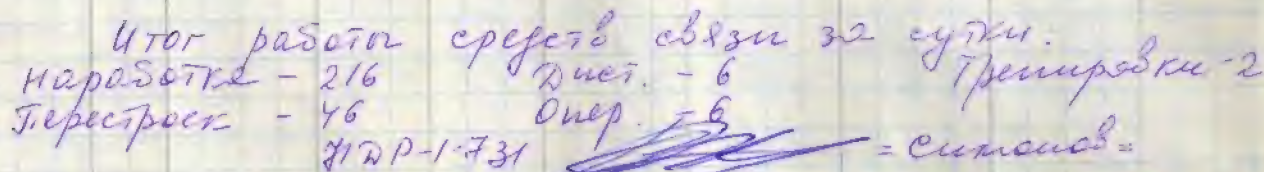 Итог работы средств связи за сутки.
Наработка - 216 Дист. - 6 Тренировки - 2
Перестроек - 46 Опер. - 6
НДР-1-731 = Симонов =